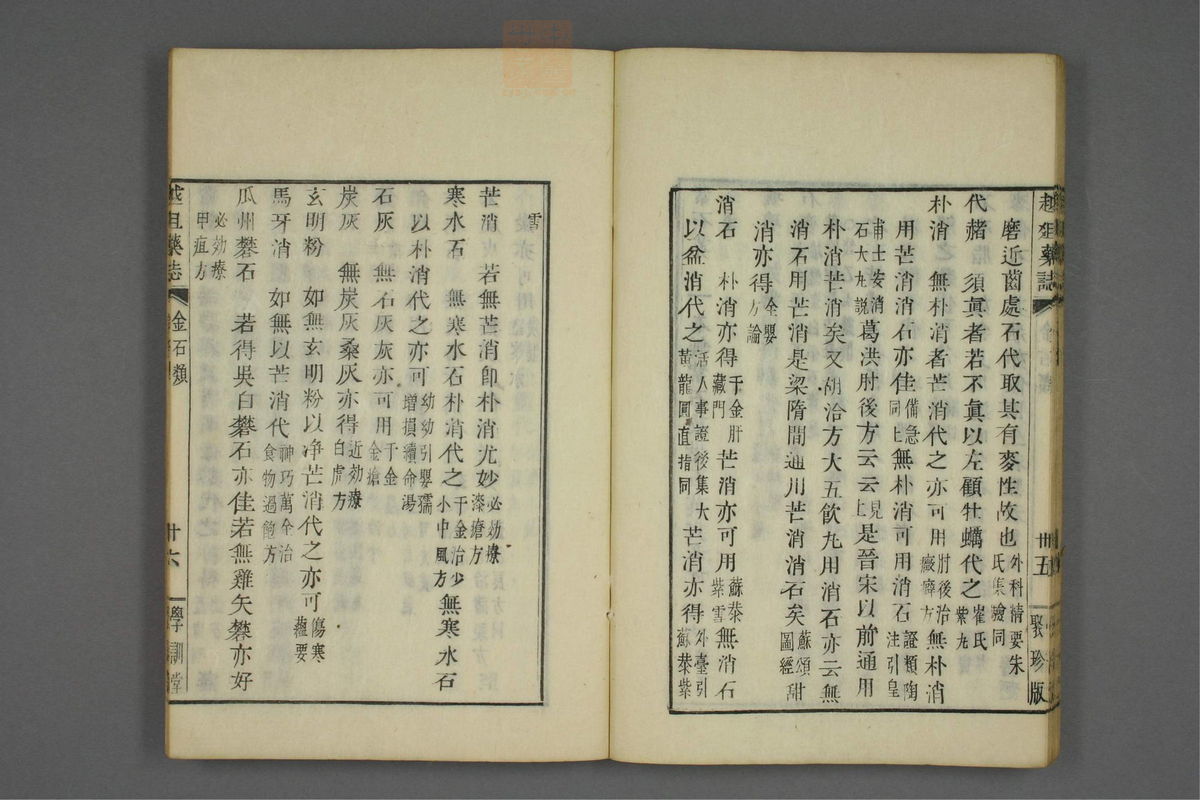 磨近齒處石代取其有麥性故也外科精要朱氏集驗同
代赭 須眞者若不眞以左顧牡蠣代之崔氏紫丸
朴消 無朴消者芒消代之亦可用肘後治癥癖方無朴消
用芒消消石亦佳備急同上無朴消可用消石證類陶注引皇
甫士安消石大丸説葛洪肘後方云云見上是晉宋以前通用
朴消芒消矣又胡洽方大五飲丸用消石亦云無
消石用芒消是梁隋間通川芒消消石矣蘇頌圖經甜
消亦得全嬰方論
消石 朴消亦得千金肝藏門芒消亦可用蘇恭紫雪無消石
以盆消代之活人事證後集大黃龍圓直指同芒消亦得外臺引蘇恭紫
越俎藥誌
卅五
聚珍版
雪
芒消 若無芒消卽朴消尤妙必効療漆瘡方
寒水石 無寒水石朴消代之千金治少小中風方無寒水石
以朴消代之亦可幼幼引嬰孺增損續命湯
石灰 無石灰灰亦可用千金金瘡
炭灰 無炭灰桑灰亦得近効療白虎方
玄明粉 如無玄明粉以净芒消代之亦可傷寒蘊要
馬牙消 如無以芒消代神巧萬全治食物過飽方
瓜州礬石 若得吳白礬石亦佳若無雞矢礬亦好
必効療甲疽方
越俎藥誌
金石類
廿六
學訓堂